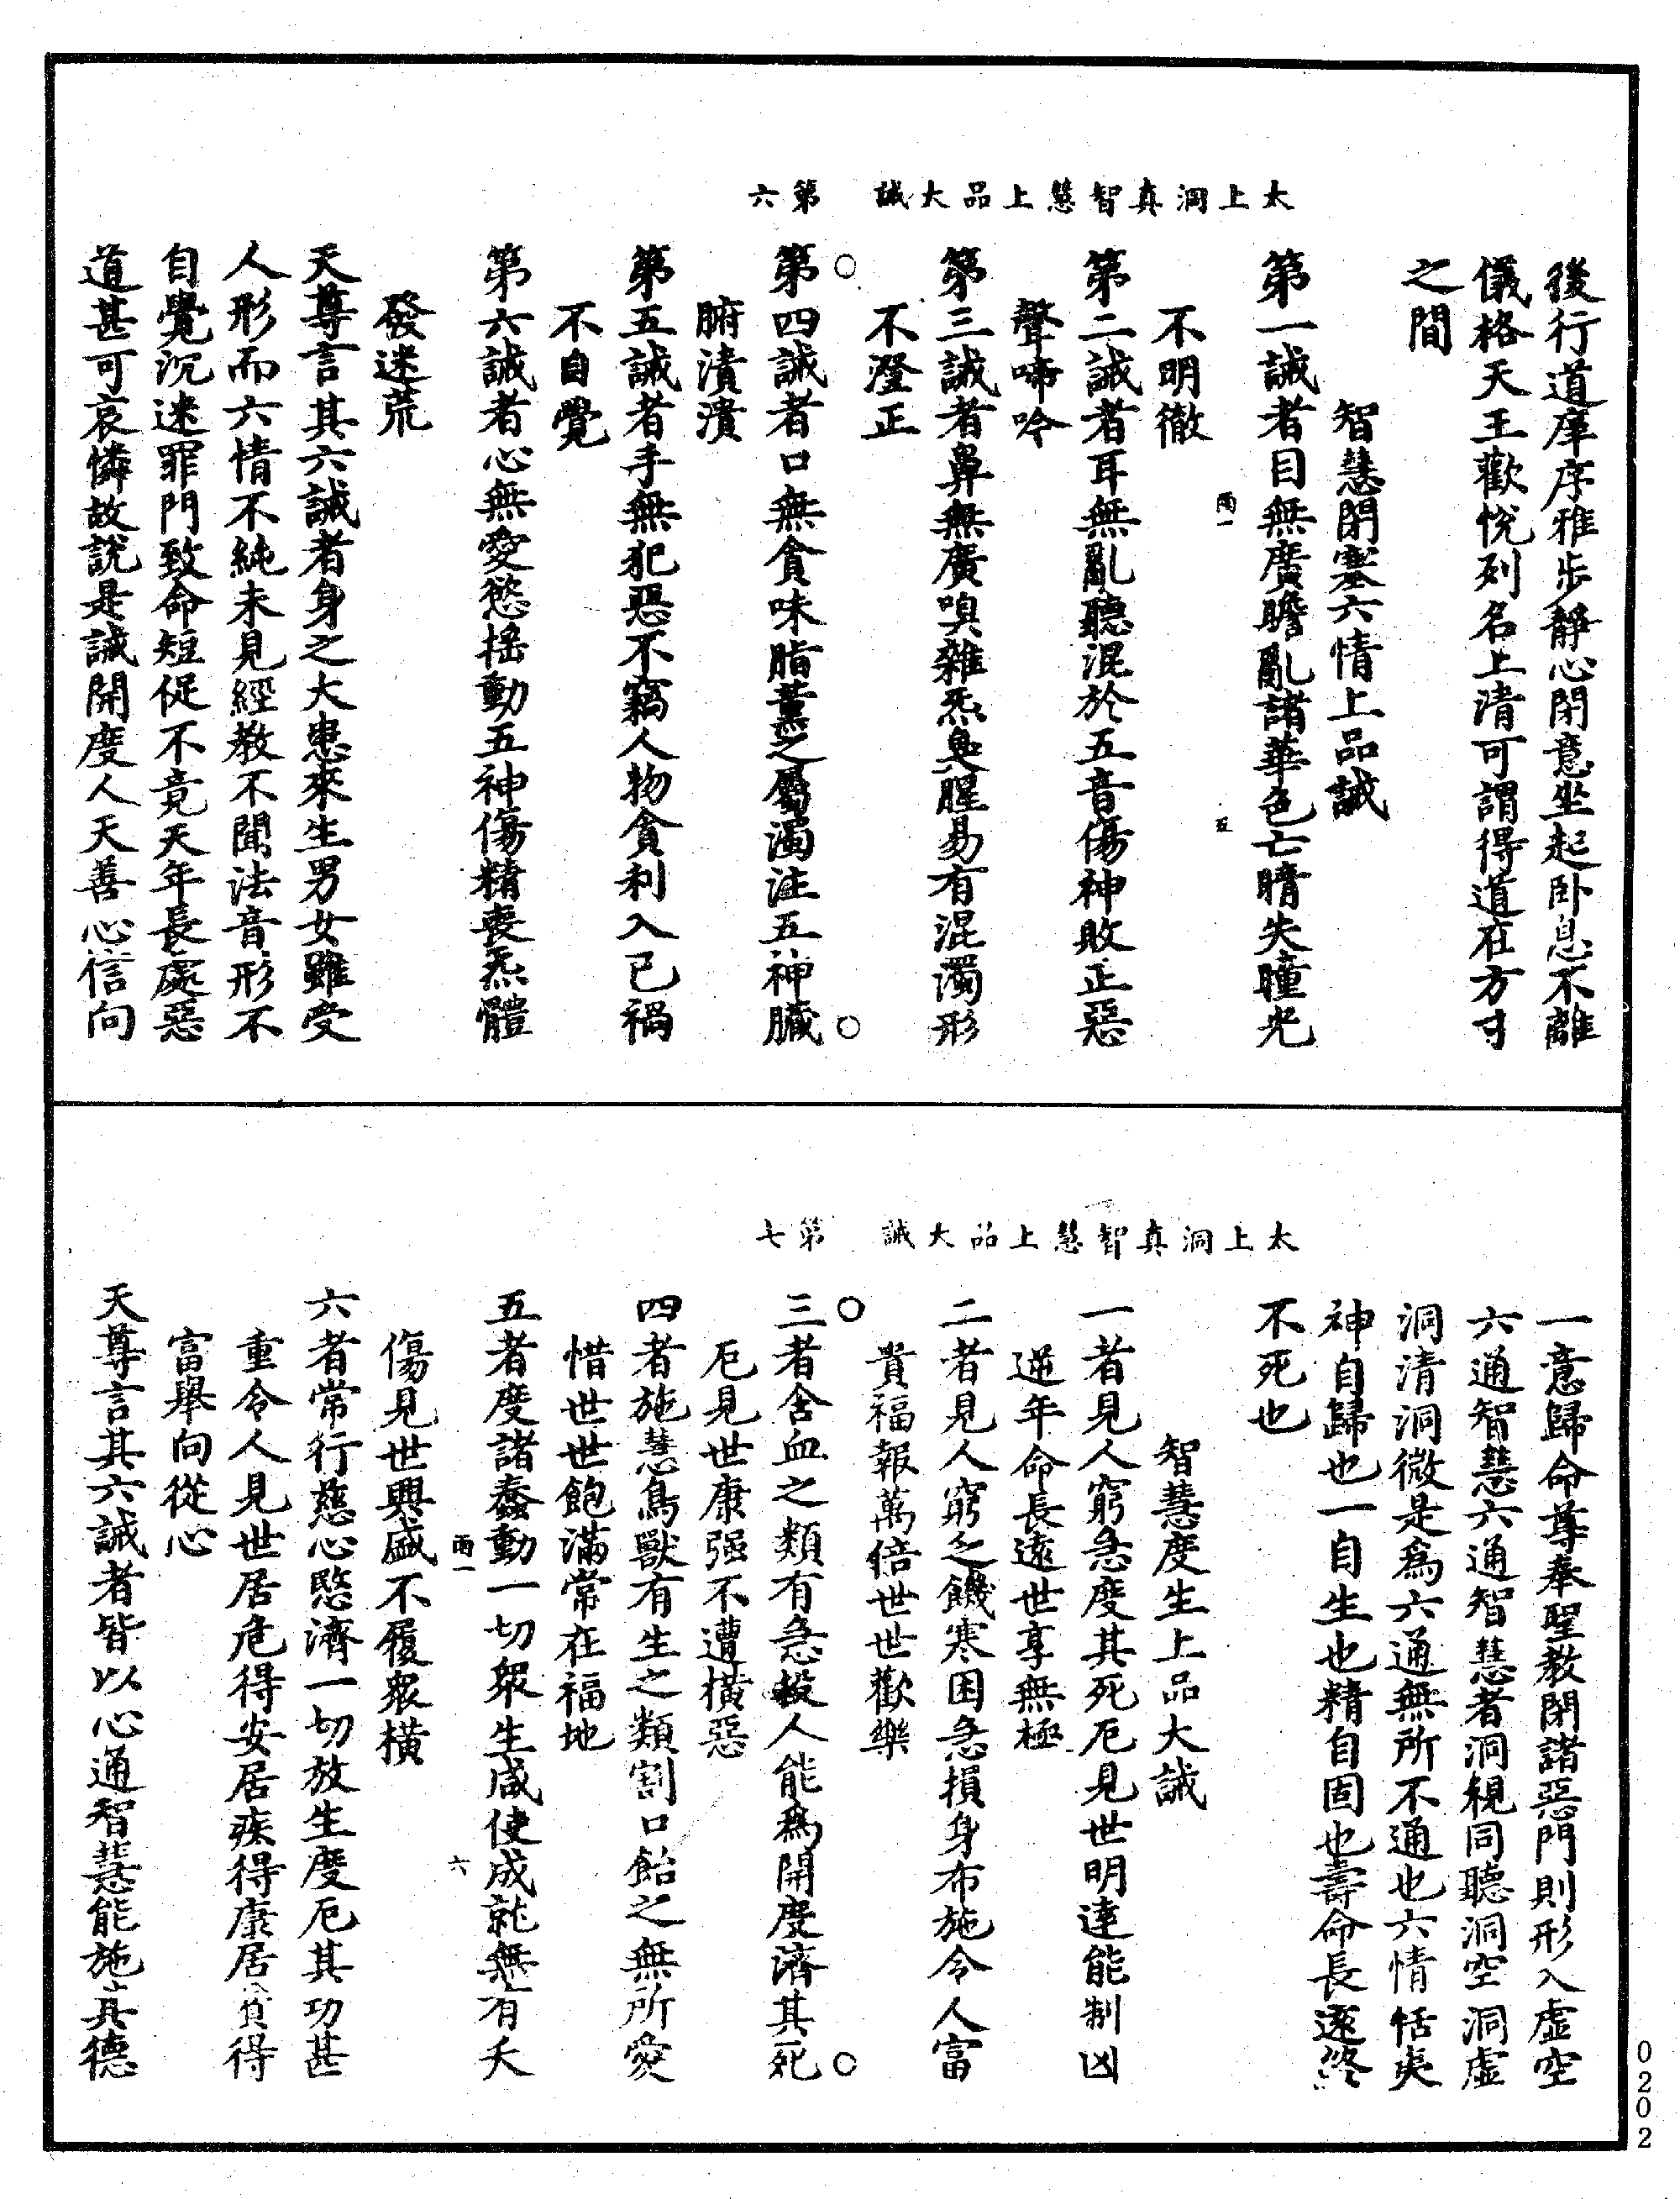 太上洞真智慧上品大誡　第六
後行道庠序雅步靜心閉意坐起卧息不離
儀格天王歡悅列名上清可謂得道在方寸
之間
智慧閉塞六情上品誡
第一誡者目無廣瞻亂諸華色亡睛失瞳光
不明徹
雨一
五
第二誡者耳無亂聽混於五音傷神敗正惡
聲啼吟
第三誡者鼻無廣嗅雜炁臭腥易有混濁形
不澄正
第四誡者口無貪味脂薰之屬濁注五神臟
腑潰潰
第五誡者手無犯惡不竊人物貪利入己禍
不自覺
第六誡者心無愛慾搖動五神傷精喪炁體
發迷荒
天尊言其六誡者身之大患來生男女雖受
人形而六情不純未見經教不聞法音形不
自覺沉迷罪門致命短促不竟天年長處惡
道甚可哀憐故說是誡開度人天善心信向
太上洞真智慧上品大誡　第七
一意歸命尊奉聖教閉諸惡門則形入虛空
六通智慧六通智慧者洞視同聽洞空洞虛
洞清洞微是爲六通無所不通也六情恬夷
神自歸也一自生也精自固也壽命長逐終
不死也
智慧度生上品大誡
一者見人窮急度其死厄見世明達能制凶
逆年命長遠世享無極
二者見人窮乏饑寒困急損身布施令人富
貴福報萬倍世世歡樂
三者含血之類有急投人能爲開度濟其死
厄見世康强不遭橫惡
四者施慧鳥獸有生之類割口飴之無所愛
惜世世飽滿常在福地
五者度諸蠢動一切衆生咸使成就無有夭
雨一
六
傷見世興盛不履衆橫
六者常行慈心愍濟一切放生度厄其功甚
重令人見世居危得安居疾得康居貧得
富舉向從心
天尊言其六誡者皆以心通智慧能施其德
0202